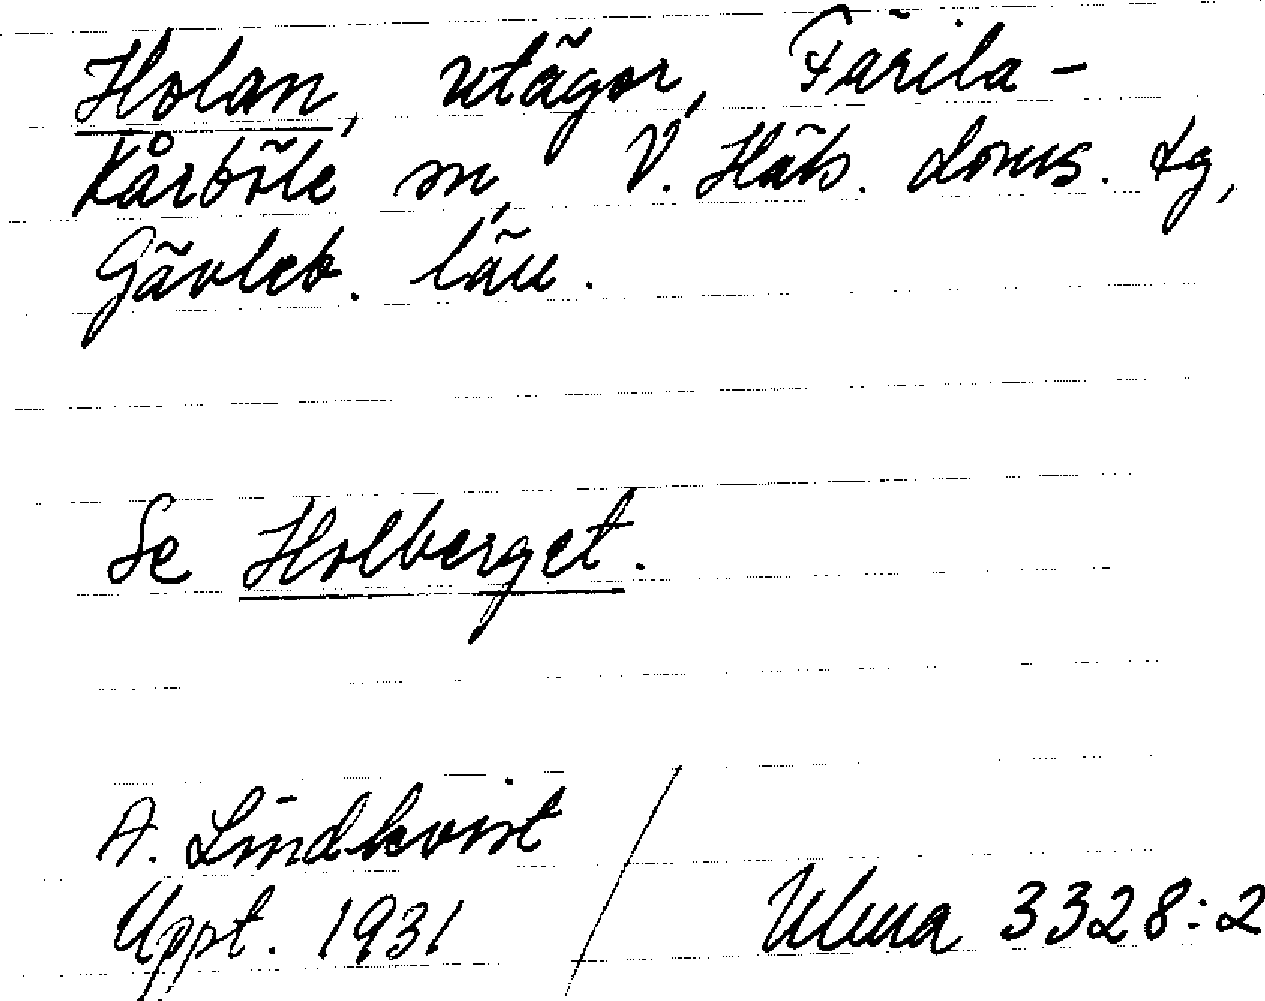 Holan, utägor, Färila-
Kårböle sn, V. Häls. doms. tg,
Gävleb. län.
Se Holberget.
A. Lindkvist
Uppt. 1931 / Ulma 3328:2